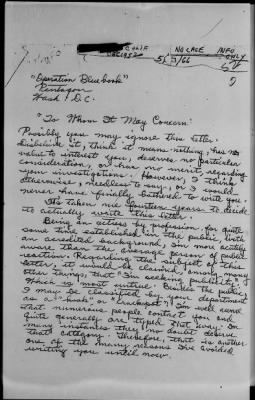 CALIF
DEC 1952
NO CASE INFO
ONLY
5/3/66
"Operation Bluebook"
Pentagon
Wash. D.C.
"To Whom It May Concern:
Possibly you may ignore this letter.
Disbelieve it, think it means nothing, has no
value to interest you, deserves no particular
consideration, or has no merit regarding
your investigations. However, I think
otherwise, needless to say, or I would
never have finally bothered to write you.
Its taken me fourteen years to decide
to actually write this letter.
Being an actress by profession, for quite
some time established in the public, with
an accredited background, I'm more acutely
aware than the average person of public
reaction. Regarding the subject of this
letter, it would be claimed, among many
other things, that "I'm seeking publicity".
Which is most untrue. Besides the public,
I may be classified by your department
as a "kook", or "crackpot". I'm well aware
that numerous people contact you and
quite generally are typed that way. In
many instances they no doubt deserve
that category. Therefore, that is another
one of the many reasons I've avoided
writing you until now.